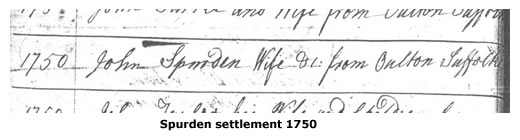 John and Wife from Oulton Suffolk
1750 John Spurden Wife &c. from Oulton Suffolk
1750 his Wife and
Spurden settlement 1750